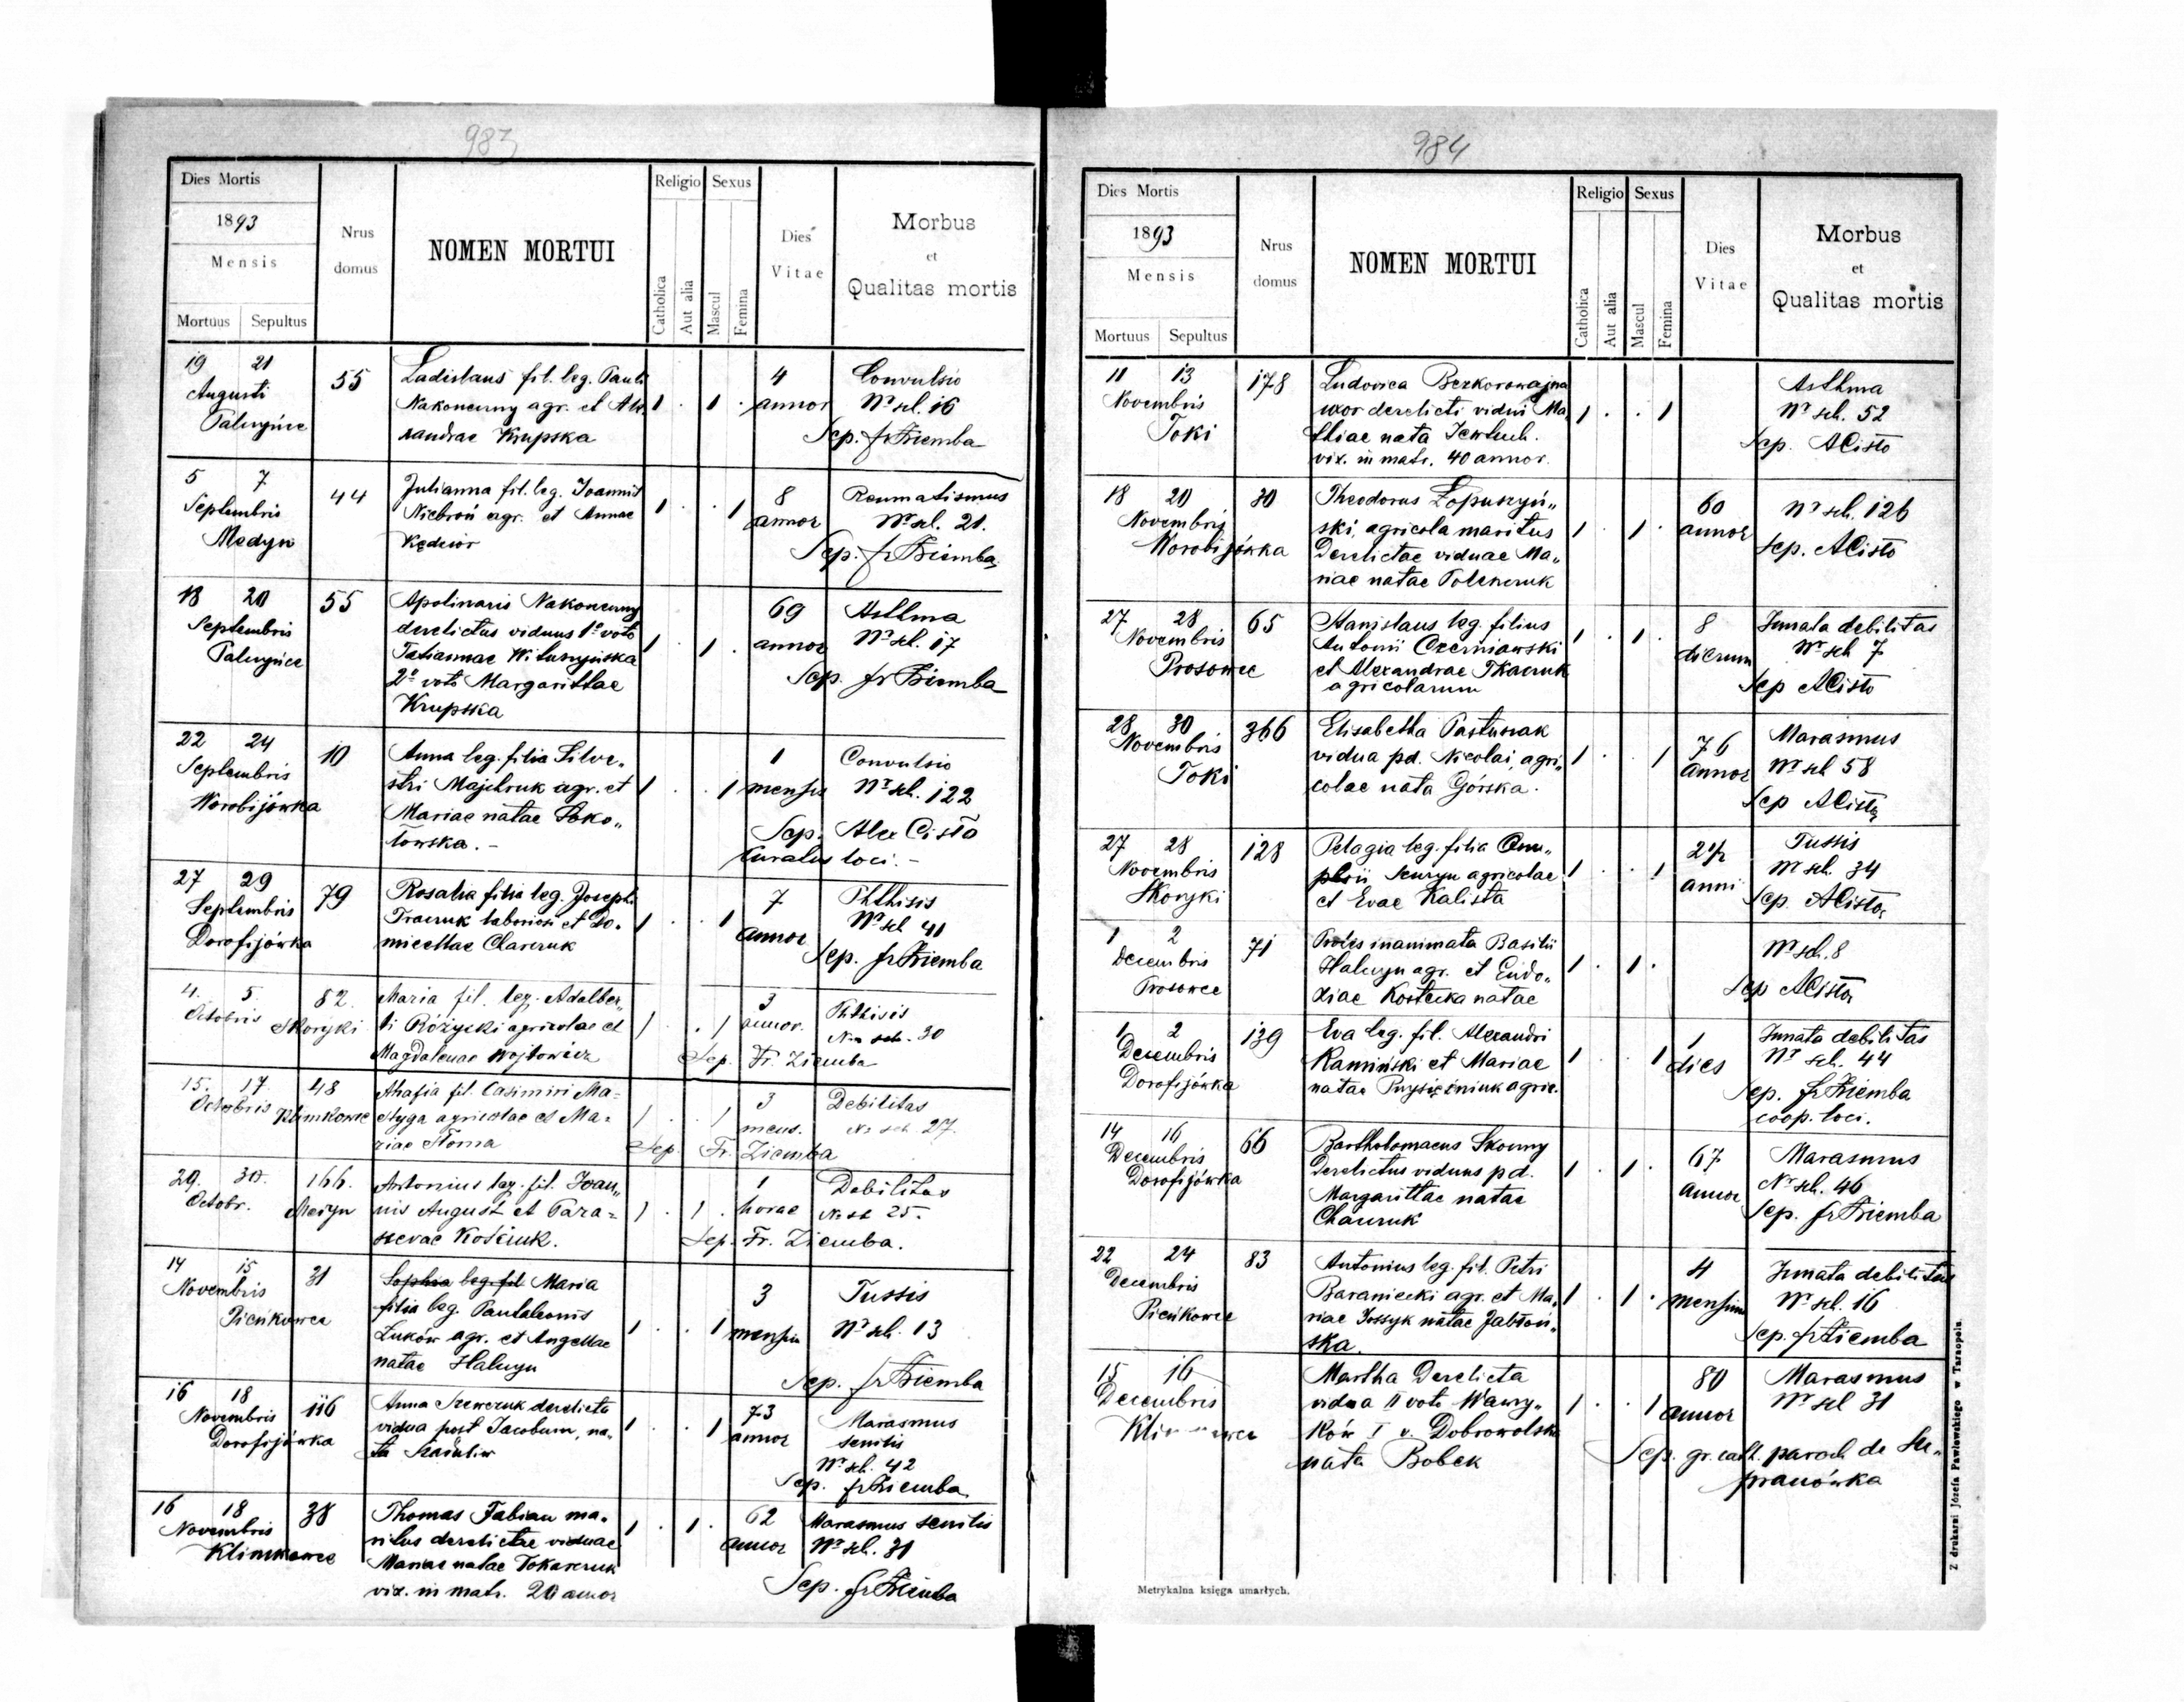 983
Dies Mortis
1893
Mensis
Mortuus Sepultus
Nrus domus
NOMEN MORTUI
Religio
Catholica
Aut alia
Sexus
Mascul
Femina
Dies Vitae
Morbus
et
Qualitas mortis
19 21 55 Ladislaus fil. leg. Pauli 4 Convulsio
Augusti Nakoneczny agr. et Ale 1 . 1 . annor Nr sch. 16
xandrae Krupska Sep. fr Ziemba
5 7 44 Julianna fil. leg. Joannis 8 Reumatismus
Septembris Niebroń agr. et Annae 1 . . 1 annor Nr sch. 21.
Medyn Kędzior Sep. fr Ziemba
18 20 55 Apolinaris Nakoneczny 69 Asthma
Septembris derelictus viduus 1º voto 1 . 1 . annor Nr sch. 17
Tatiannae
2º voto Margarittae Sep. fr Ziemba
Krupska
22 24 10 Anna leg. filia Silve„ 1 Convulsio
Septembris stri Majchruk agr. et 1 . . 1 mensis Nr sch. 122
Worobijówka Mariae natae Soko„ Sep. Alex Cisło
łowska. - Curatus loci. -
27 29 79 Rosalia filia leg. Josephi 7 Phthisis
Septembris laboriosi et Do. 1 . . 1 annor Nr sch 41
Dorofijówka micellae Sep. fr Ziemba
4. 5. 82. Maria fil. leg. Adalber„ 3 Phthisis
Octobris Skoryki ti Różycki agricolae et 1 . . 1 annor. Nr. sch. 30
Magdalenae Wojtowicz Sep. Fr. Ziemba
15. 17. 48 Ahafia fil. Casimiri Ma= 3 Debilitas
Octobris Klimkowce agricolae et Ma= 1 . . 1 mens. Nr sch 27.
riae Słoma Sep. Fr. Ziemba
29. 30. 166. Antonius leg. fil. Joan„ 1 Debilitas
Octobr. Medyn nis August et Para= 1 . 1 . horae Nr sch 25.
scevae Sep. Fr. Ziemba.
14 15 31 Sophia leg. fil Maria 3 Tussis
Novembris filia leg. Pantaleonis
Pieńkowce Łuków agr. et Angellae 1 . . 1 mensium Nr sch. 13
natae Haluyn Sep. fr Ziemba
16 18 116 Anna Szewczuk derelicta 73 Marasmus
Novembris vidua post Jacobum, na„ 1 . . 1 annor senilis
Dorofijówka ta Nr sch. 42
Sep. fr Ziemba
16 18 38 Thomas Fabian ma„ 62 Marasmus senilis
Novembris ritus derelictae viduae 1 . 1 . annor Nr sch. 31
Klimkowce Mariae natae Tokarczuk
vix. in matr. 20 annor Sep. fr Ziemba
984
Dies Mortis
1893
Mensis
Mortuus Sepultus
Nrus domus
NOMEN MORTUI
Religio
Catholica
Aut alia
Sexus
Mascul
Femina
Dies Vitae
Morbus
et
Qualitas mortis
11 13 178 Ludovica Bezkorowajna Asthma
Novembris uxor derelicti vidui Ma„ 1 . . 1 Nr sch. 52
Toki thiae nata Sep. ACisło
vix. in matr. 40 annor.
18 20 30 Theodorus Łopuszyń„ 60 Nr sch. 126
Novembris ski, agricola maritus 1 . 1 . annor Sep. ACisło
Worobijówka Derelictae viduae Ma„
riae natae
27 28 65 Stanislaus leg. filius 8 Innata debilitas
Novembris Antonii Czerniawski 1 . 1 . dierum Nr sch 7
Prosowce et Alexandrae Tkaczuk Sep ACisło
agricolarum
28 30 366 Elisabetha Pastuszak 76 Marasmus
Novembris vidua pd. Nicolai, agri„ 1 . . 1 annor Nr sch 58
Toki colae nata Górska. Sep ACisło
27 28 128 Pelagia leg. filia Onu„ 2½ Tussis
Novembris phrii agricolae 1 . . 1 anni Nr sch. 34
Skoryki et Evae Kalista Sep. ACisło
1 2 71 Proles inanimata Basilii Nr sch. 8
Decembris Haluyn agr. et Eudo„ 1 . 1 .
Prosowce xiae Kostecka natae Sep ACisło
1 2 139 Eva leg. fil. Alexandri 1 Innata debilitas
Decembris Kamiński et Mariae 1 . . 1 dies Nr sch. 44
Dorofijówka natae agric. Sep. fr Ziemba
coop. loci.
14 16 66 Bartholomaeus Skoczny 67 Marasmus
Decembris Derelictus viduus pd. 1 . 1 . annor Nr sch. 46
Dorofijówka Margarittae natae Sep. fr Ziemba
22 24 83 Antonius leg. fil. Petri 4 Innata debilitas
Decembris Baraniecki agr. et Ma„ 1 . 1 . mensium Nr sch. 16
Pieńkowce riae Jossyk natae Jabłoń„ Sep. fr Ziemba
ska.
15 16 Martha Derelicta 80 Marasmus
Decembris vidua II voto Wawry„ 1 . . 1 annor Nr sch 31
ków I v. Dobrowolska Sep. gr. cath. paroch de
nata Bobek
Metrykalna księga umarłych.
Z drukarni Józefa Pawłowskiego w Tarnopolu.